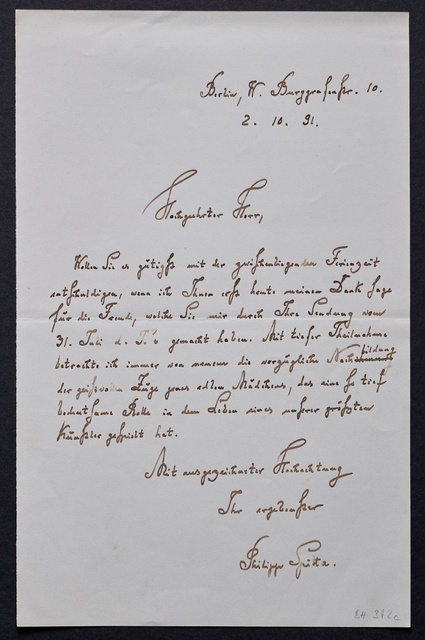 Berlin, W. Burggrafenstr. 10.
2. 10. 91.
Hochgeehrter Herr,
Wollen Sie es gütigst mit der zwischenliegenden Ferienzeit
entschuldigen, wenn ich Ihnen erst heute meinen Dank sage
für die Freude, welche Sie mir durch Ihre Sendung vom
31. Juli d. J.'s gemacht haben. Mit tiefer Theilnahme
betrachte ich immer von neuem die vorzügliche Nachbildung
der geistvollen Züge jenes edlen Mädchens, das eine so tief
bedeutsame Rolle in dem Leben eines unserer größten
Künstler gespielt hat.
Mit ausgezeichneter Hochachtung
Ihr ergebenster
Philipp Spitta.